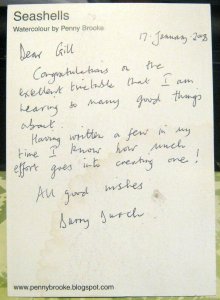 Seashells
Watercolour by Penny Brooke
17. January 2008
Dear Gill
Congratulations on the
excellent timetable that I am
hearing so many good things
about.
Having written a few in my
time I know how much
effort goes into creating one!
All good wishes
Barry
www.pennybrooke.blogspot.com